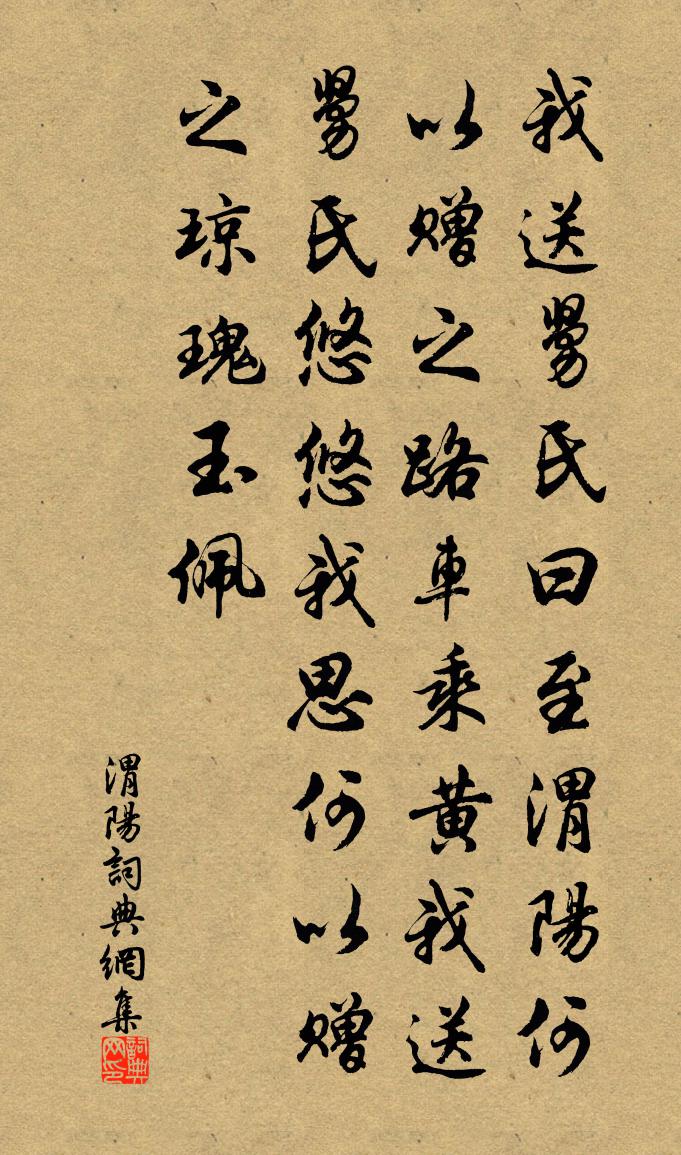 我送舅氏曰至渭陽何
以赠之路車乘黄我送
舅氏悠悠我思何以赠
之琼瑰玉佩
渭陽詞典網集
詞典
网印